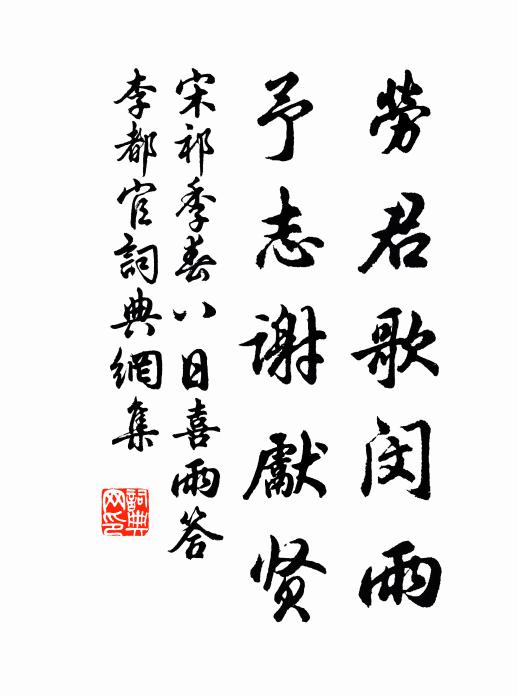 勞君歌闵雨
予志谢獻贤
宋祁季春八日喜雨答
李都官詞典網集
詞典网印